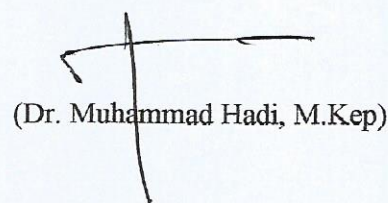 (Dr. Muhammad Hadi, M.Kep)